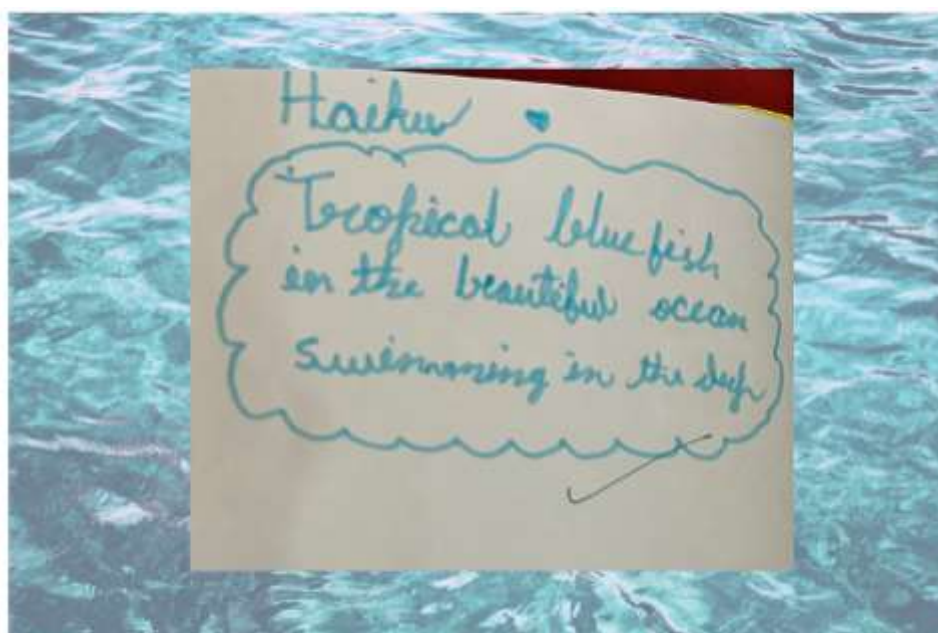 Haiku
Tropical blue fish
in the beautiful ocean
Swimming in the deep